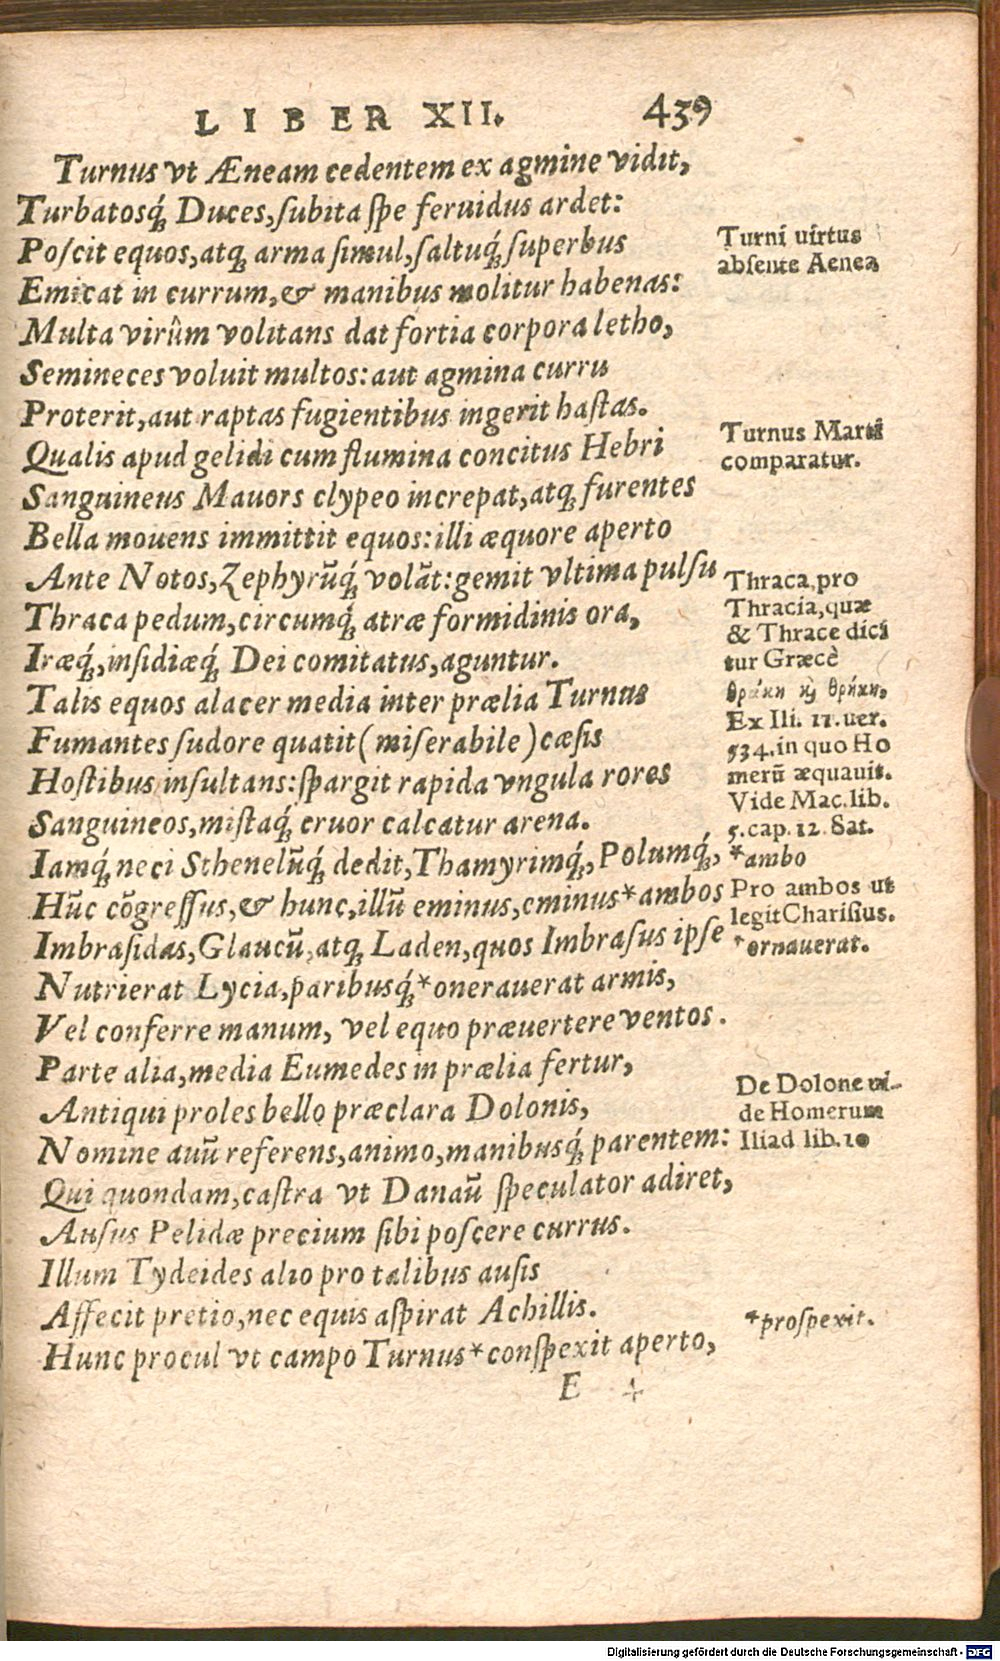 LIBER XII. 439
Turnus vt Æneam cedentem ex agmine vidit,
Turbatosq́; Duces, subita spe feruidus ardet:
Poscit equos, atq; arma simul, saltuq́; superbus
Emicat in currum, & manibus molitur habenas:
Multa virûm volitans dat fortia corpora letho,
Semineces voluit multos: aut agmina curru
Proterit, aut raptas fugientibus ingerit hastas.
Qualis apud gelidi cum flumina concitus Hebri
Sanguineus Mauors clypeo increpat, atq; furentes
Bella mouens immittit equos: illi æquore aperto
Ante Notos, Zephyrūq́; volāt: gemit vltima pulsu
Thraca pedum, circumq́; atræ formidinis ora,
Iræq́;, insidiæq́; Dei comitatus, aguntur.
Talis equos alacer media inter prælia Turnus
Fumantes sudore quatit (miserabile) cæsis
Hostibus insultans: spargit rapida vngula rores
Sanguineos, mistaq́; cruor calcatur arena.
Iamq́; neci Sthenelūq́; dedit, Thamyrimq́;, Polumq́;,
Hūc cōgressus, & hunc, illū eminus, eminus * ambos
Imbrasidas, Glaucū, atq; Laden, quos Imbrasus ipse
Nutrierat Lycia, paribusq́; * onerauerat armis,
Vel conferre manum, vel equo præuertere ventos.
Parte alia, media Eumedes in prælia fertur,
Antiqui proles bello præclara Dolonis,
Nomine auū referens, animo, manibusq́; parentem:
Qui quondam, castra vt Danaū speculator adiret,
Ausus Pelidæ precium sibi poscere currus.
Illum Tydeides alio pro talibus ausis
Affecit pretio, nec equis aspirat Achillis.
Hunc procul vt campo Turnus * conspexit aperto,
E 4
Turni uirtus
absente Aenea
Turnus Marti
comparatur.
Thraca, pro
Thracia, quæ
& Thrace dici
tur Græcè
θράκη κỳ θρήκη.
Ex Ili. 11. uer.
534. in quo Ho
merū æquauit.
Vide Mac. lib.
5. cap. 12. Sat.
* ambo
Pro ambos ut
legit Charisius.
* ornauerat.
De Dolone ui-
de Homerum
Iliad lib. 10
* prospexit.
Digitalisierung gefördert durch die Deutsche Forschungsgemeinschaft - DFG